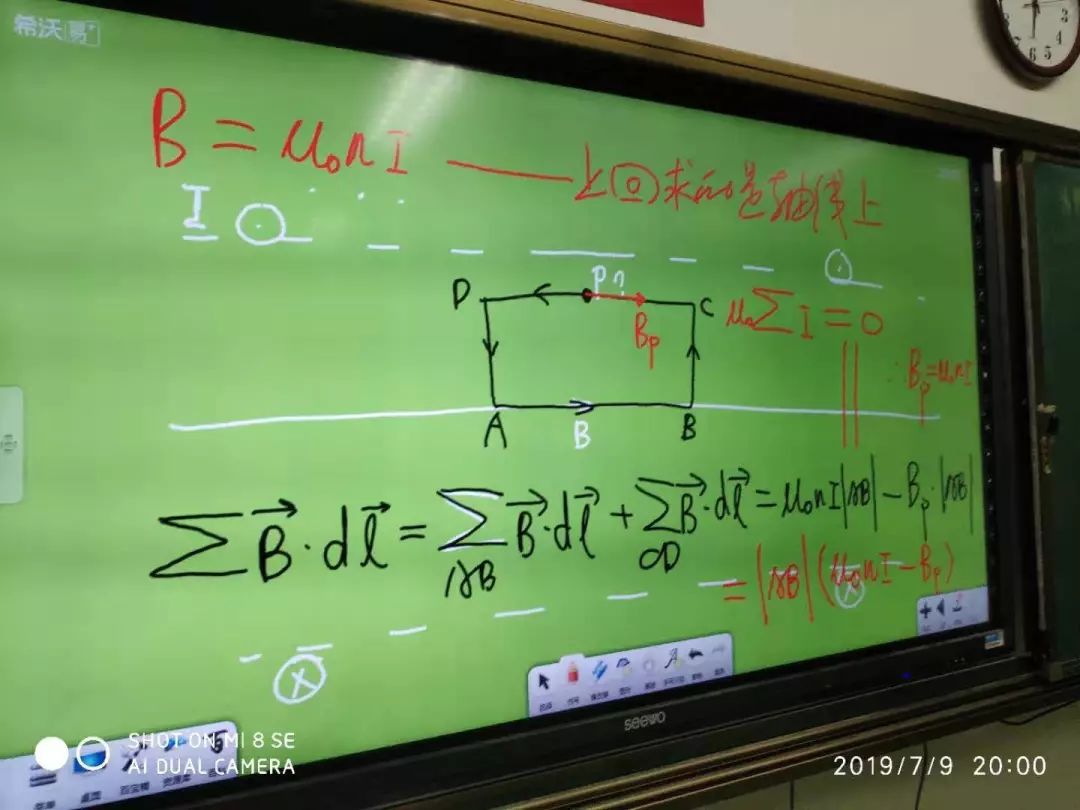 希沃易+
B = μ₀nI —— 上回求的是轴线上
I
P?
D
C
B_P
μ₀∑I = 0
∴ B_P = μ₀nI
A
B
B
∑B⃗·dl⃗ = ∑_{AB} B⃗·dl⃗ + ∑_{CD} B⃗·dl⃗ = μ₀nI|AB| − B_P·|AB|
= |AB|(μ₀nI − B_P)
seewo
SHOT ON MI 8 SE
AI DUAL CAMERA
2019/7/9 20:00